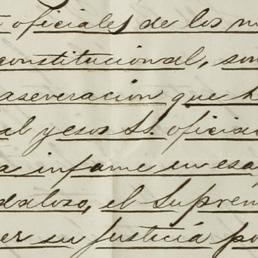 oficiales de los
constitucional, son
aseveracion que h
al y esos S. oficia
a infame en esa
daloso, el Suprem
er su justicia po